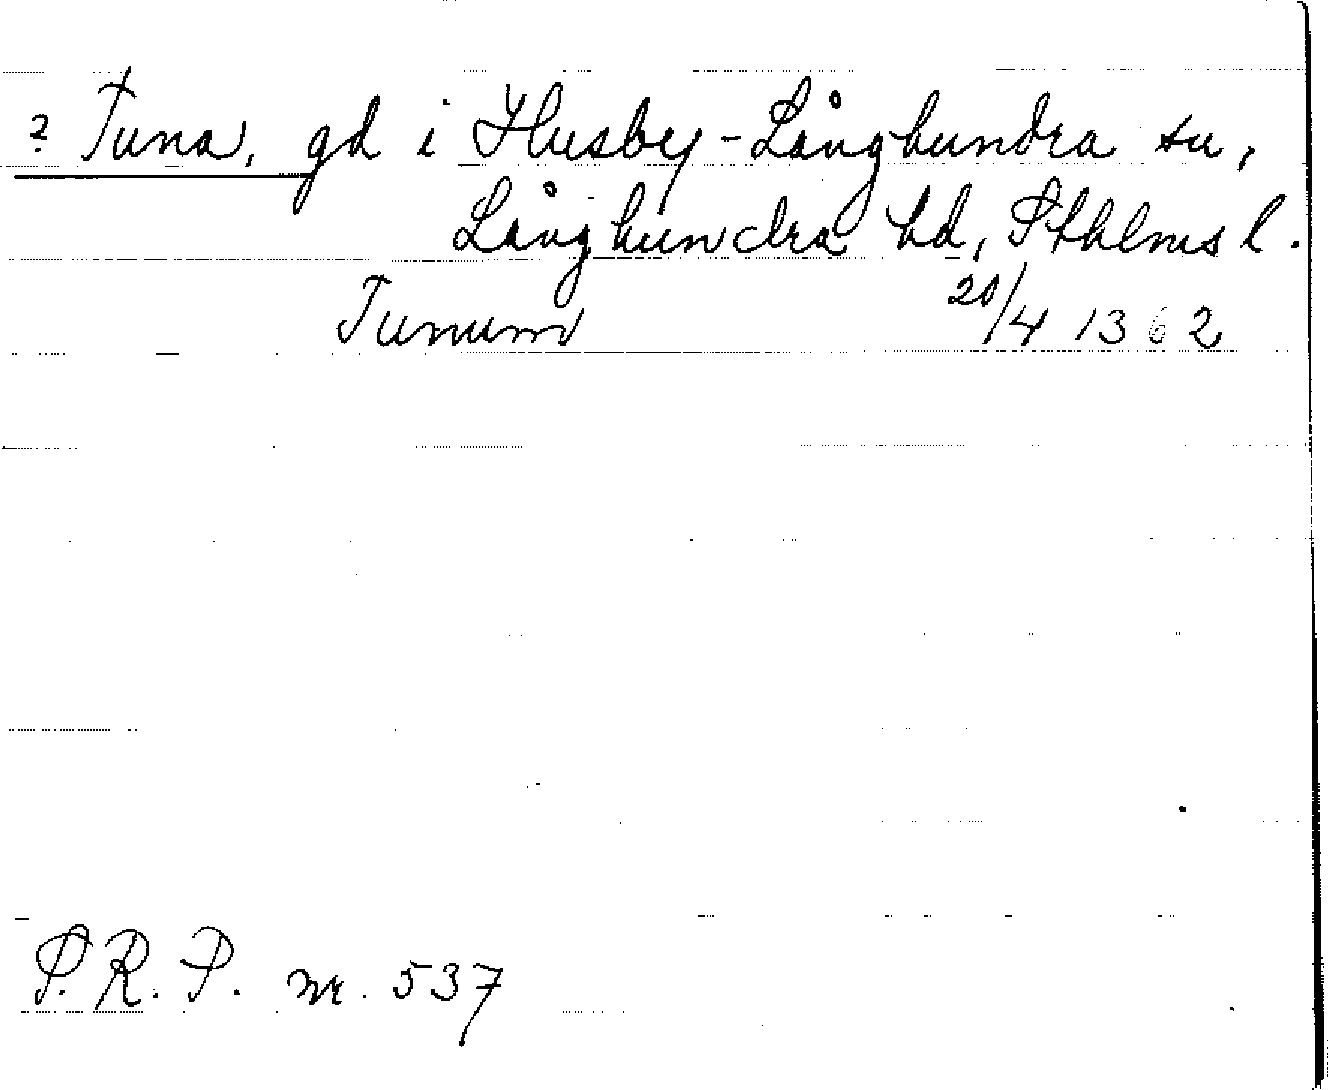 ? Tuna, gd i Husby-Långhundra sn,
Långhundra hd, Sthlms l.
Tunum 20/4 1362
S.R.P. nr. 537